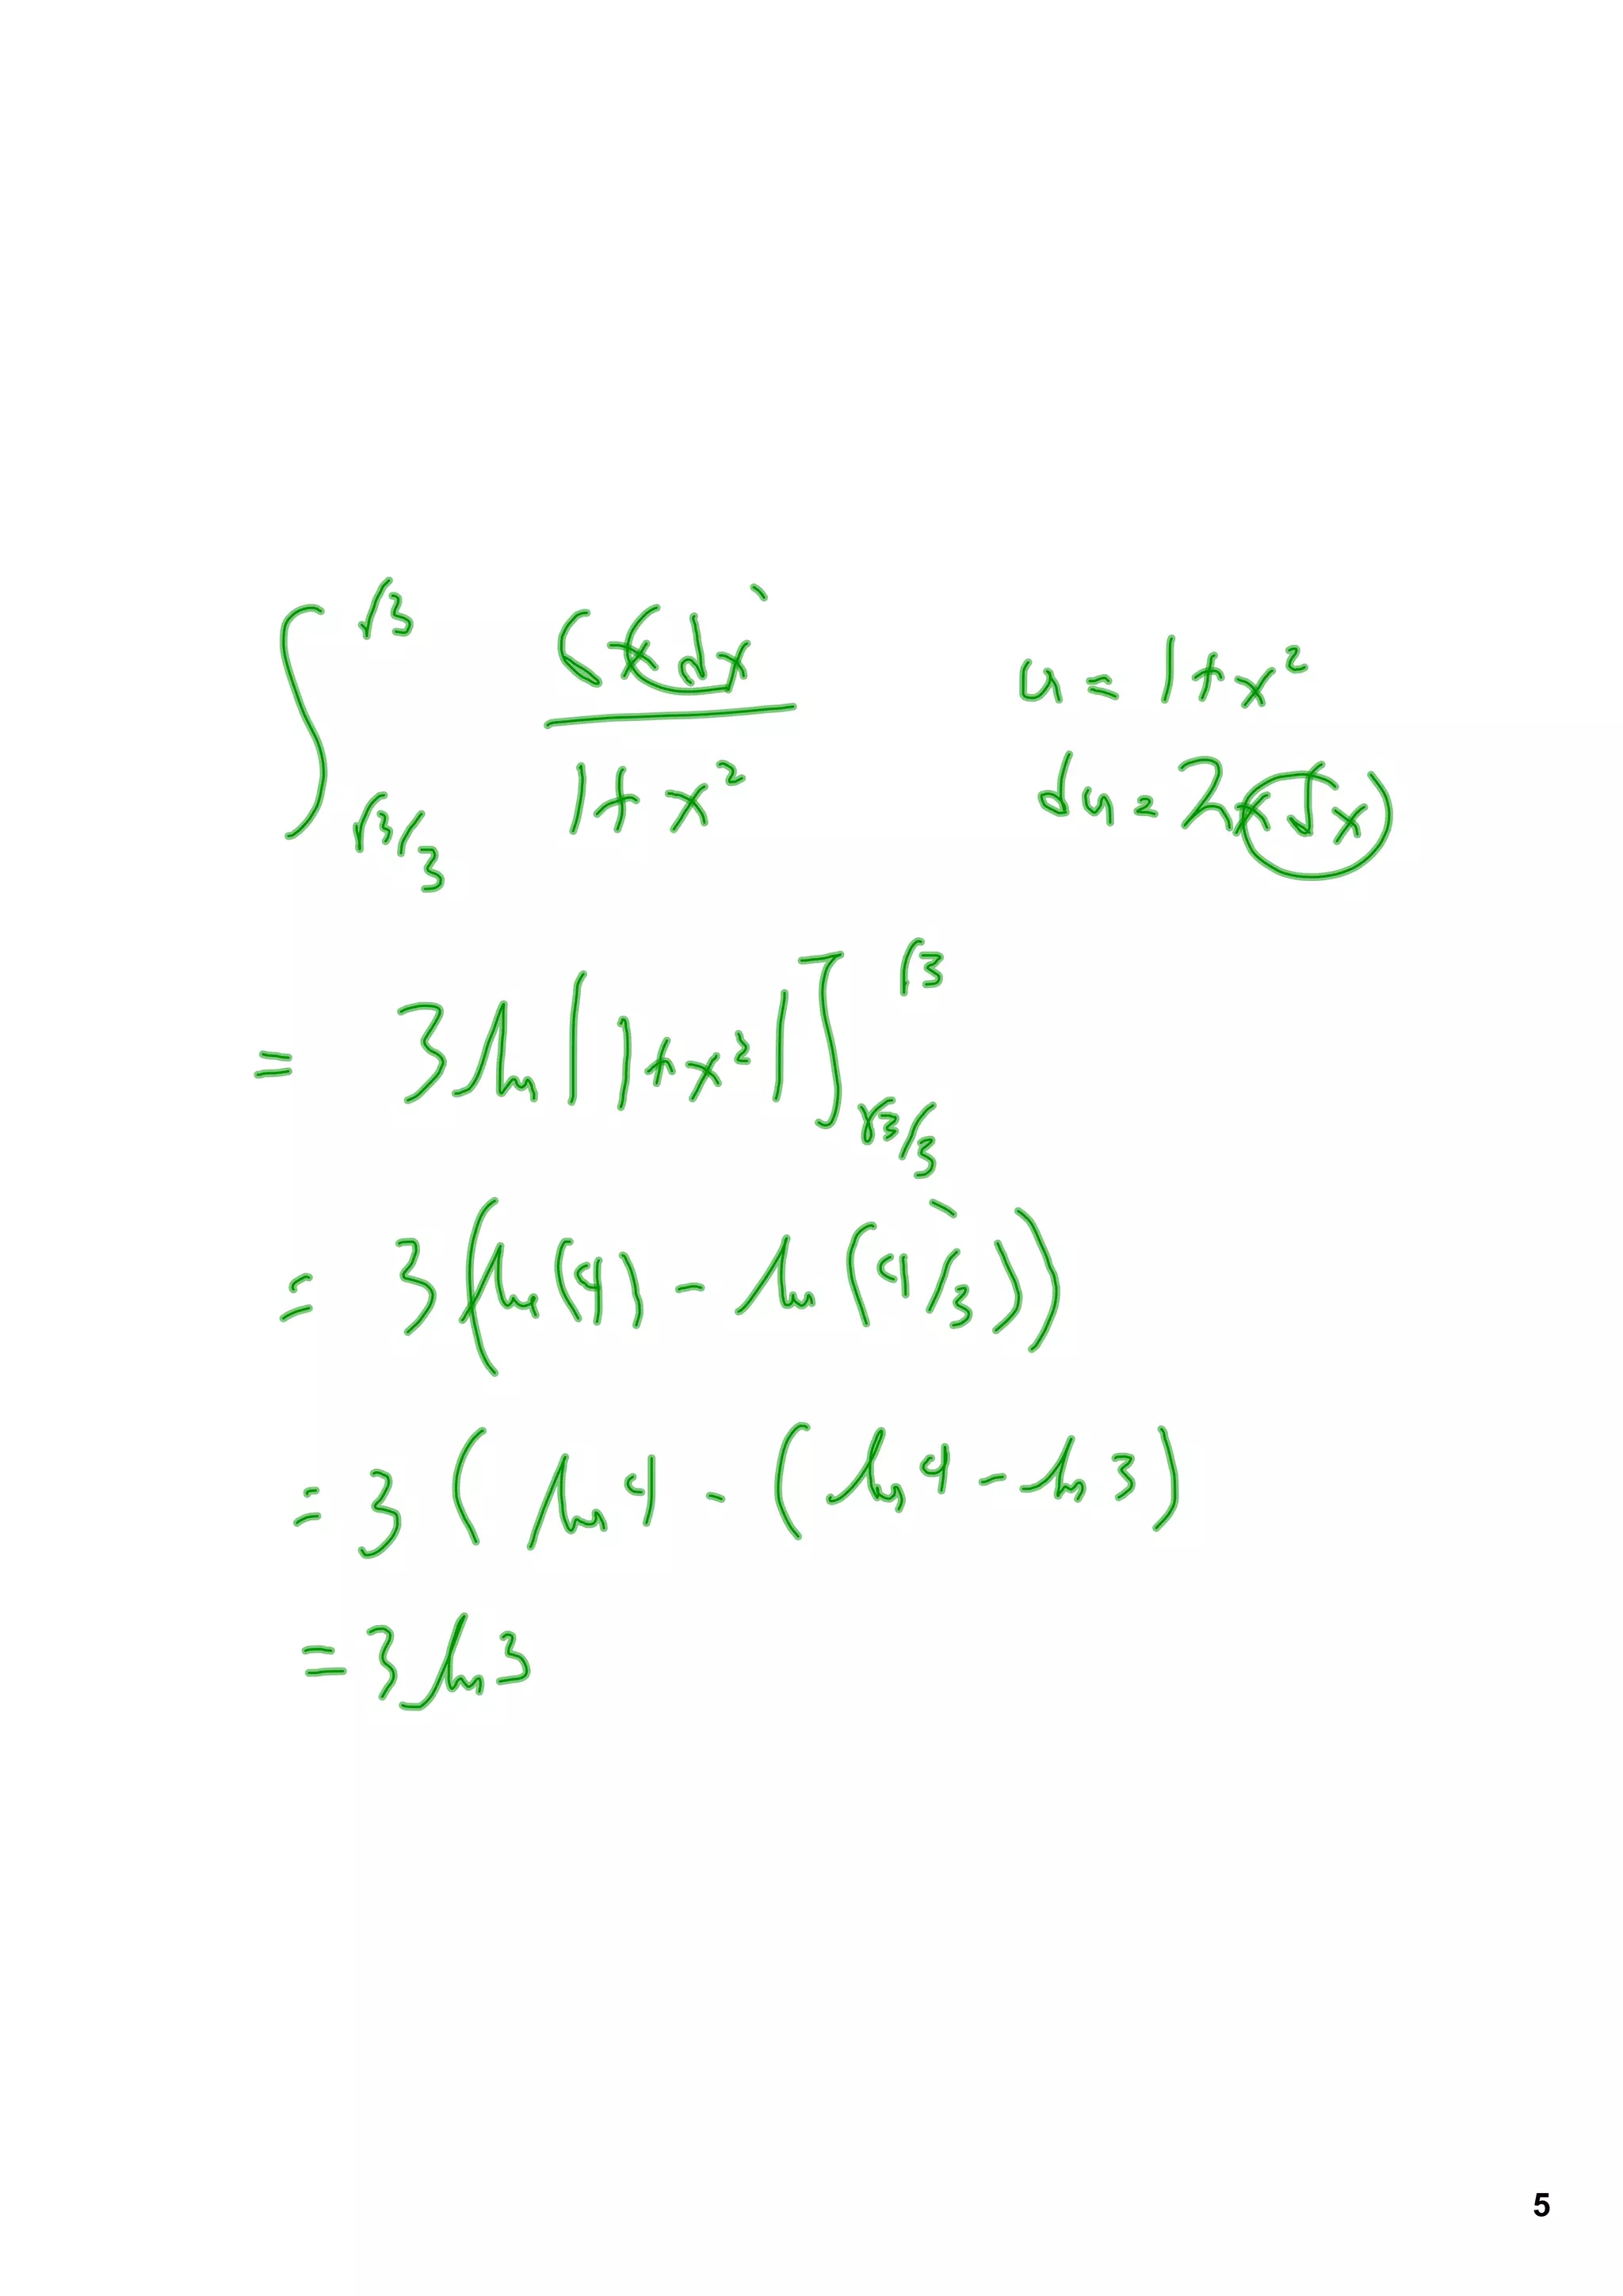 ∫_{√3/3}^{√3} 6xdx / 1+x²    u = 1+x²
du = 2xdx
= 3 ln|1+x²| ]_{√3/3}^{√3}
= 3(ln(4) - ln(4/3))
= 3(ln4 - (ln4 - ln3)
= 3ln3
5